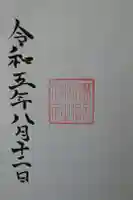 令和五年八月十二日